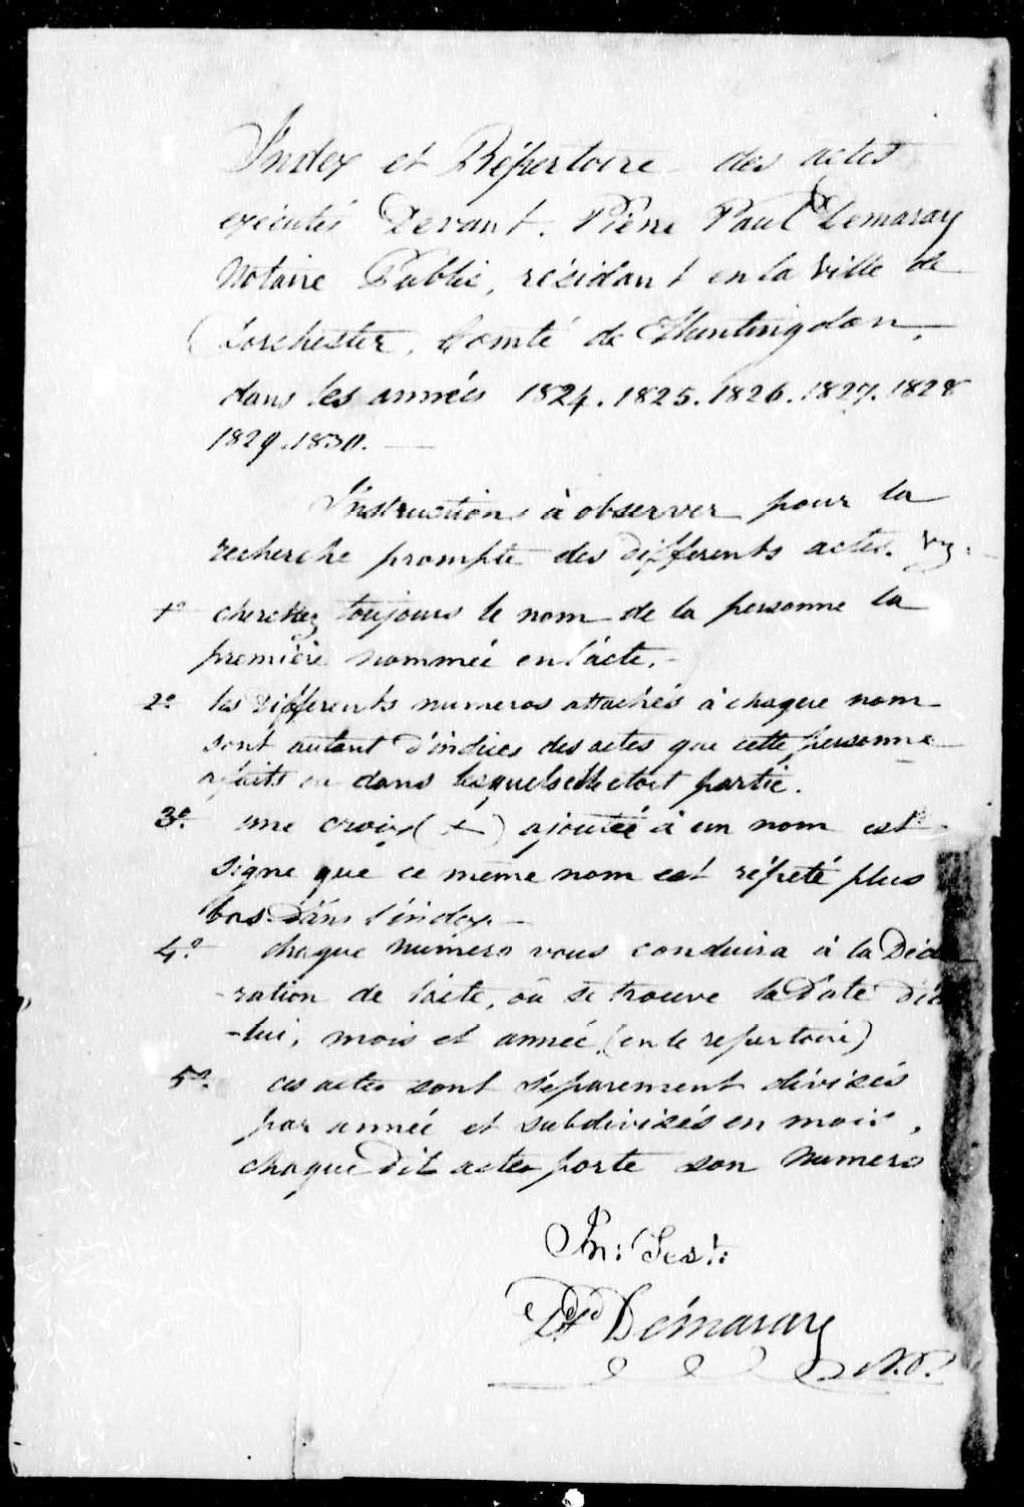 Index et Répertoire des actes
exécutés Devant Pierre Paul Demaray
Notaire Public, résidant en la Ville de
Dorchester, Comté de Huntingdon,
dans les années 1824. 1825. 1826. 1827. 1828
1829. 1830. —
Instructions à observer pour la
recherche prompte des differents actes. Vz.
1º cherchez toujours le nom de la personne la
première nommée en l'acte. -
2º les differents numeros attachés à chaque nom
sont autant d'indices des actes que cette personne
a faits ou dans lesquels elle etoit partie.
3º une croix (+) ajoutée à un nom est
signe que ce même nom est répeté plus
bas dans l'index. —
4º chaque numero vous conduira à la
-ration de l'acte, où se trouve la Date
-lui, mois et année, (en le repertoire)
5º ces actes sont séparement divisés
par année et subdivisés en mois,
chaque Dit acte porte son numero
In: Test:
Demaray
N.P.